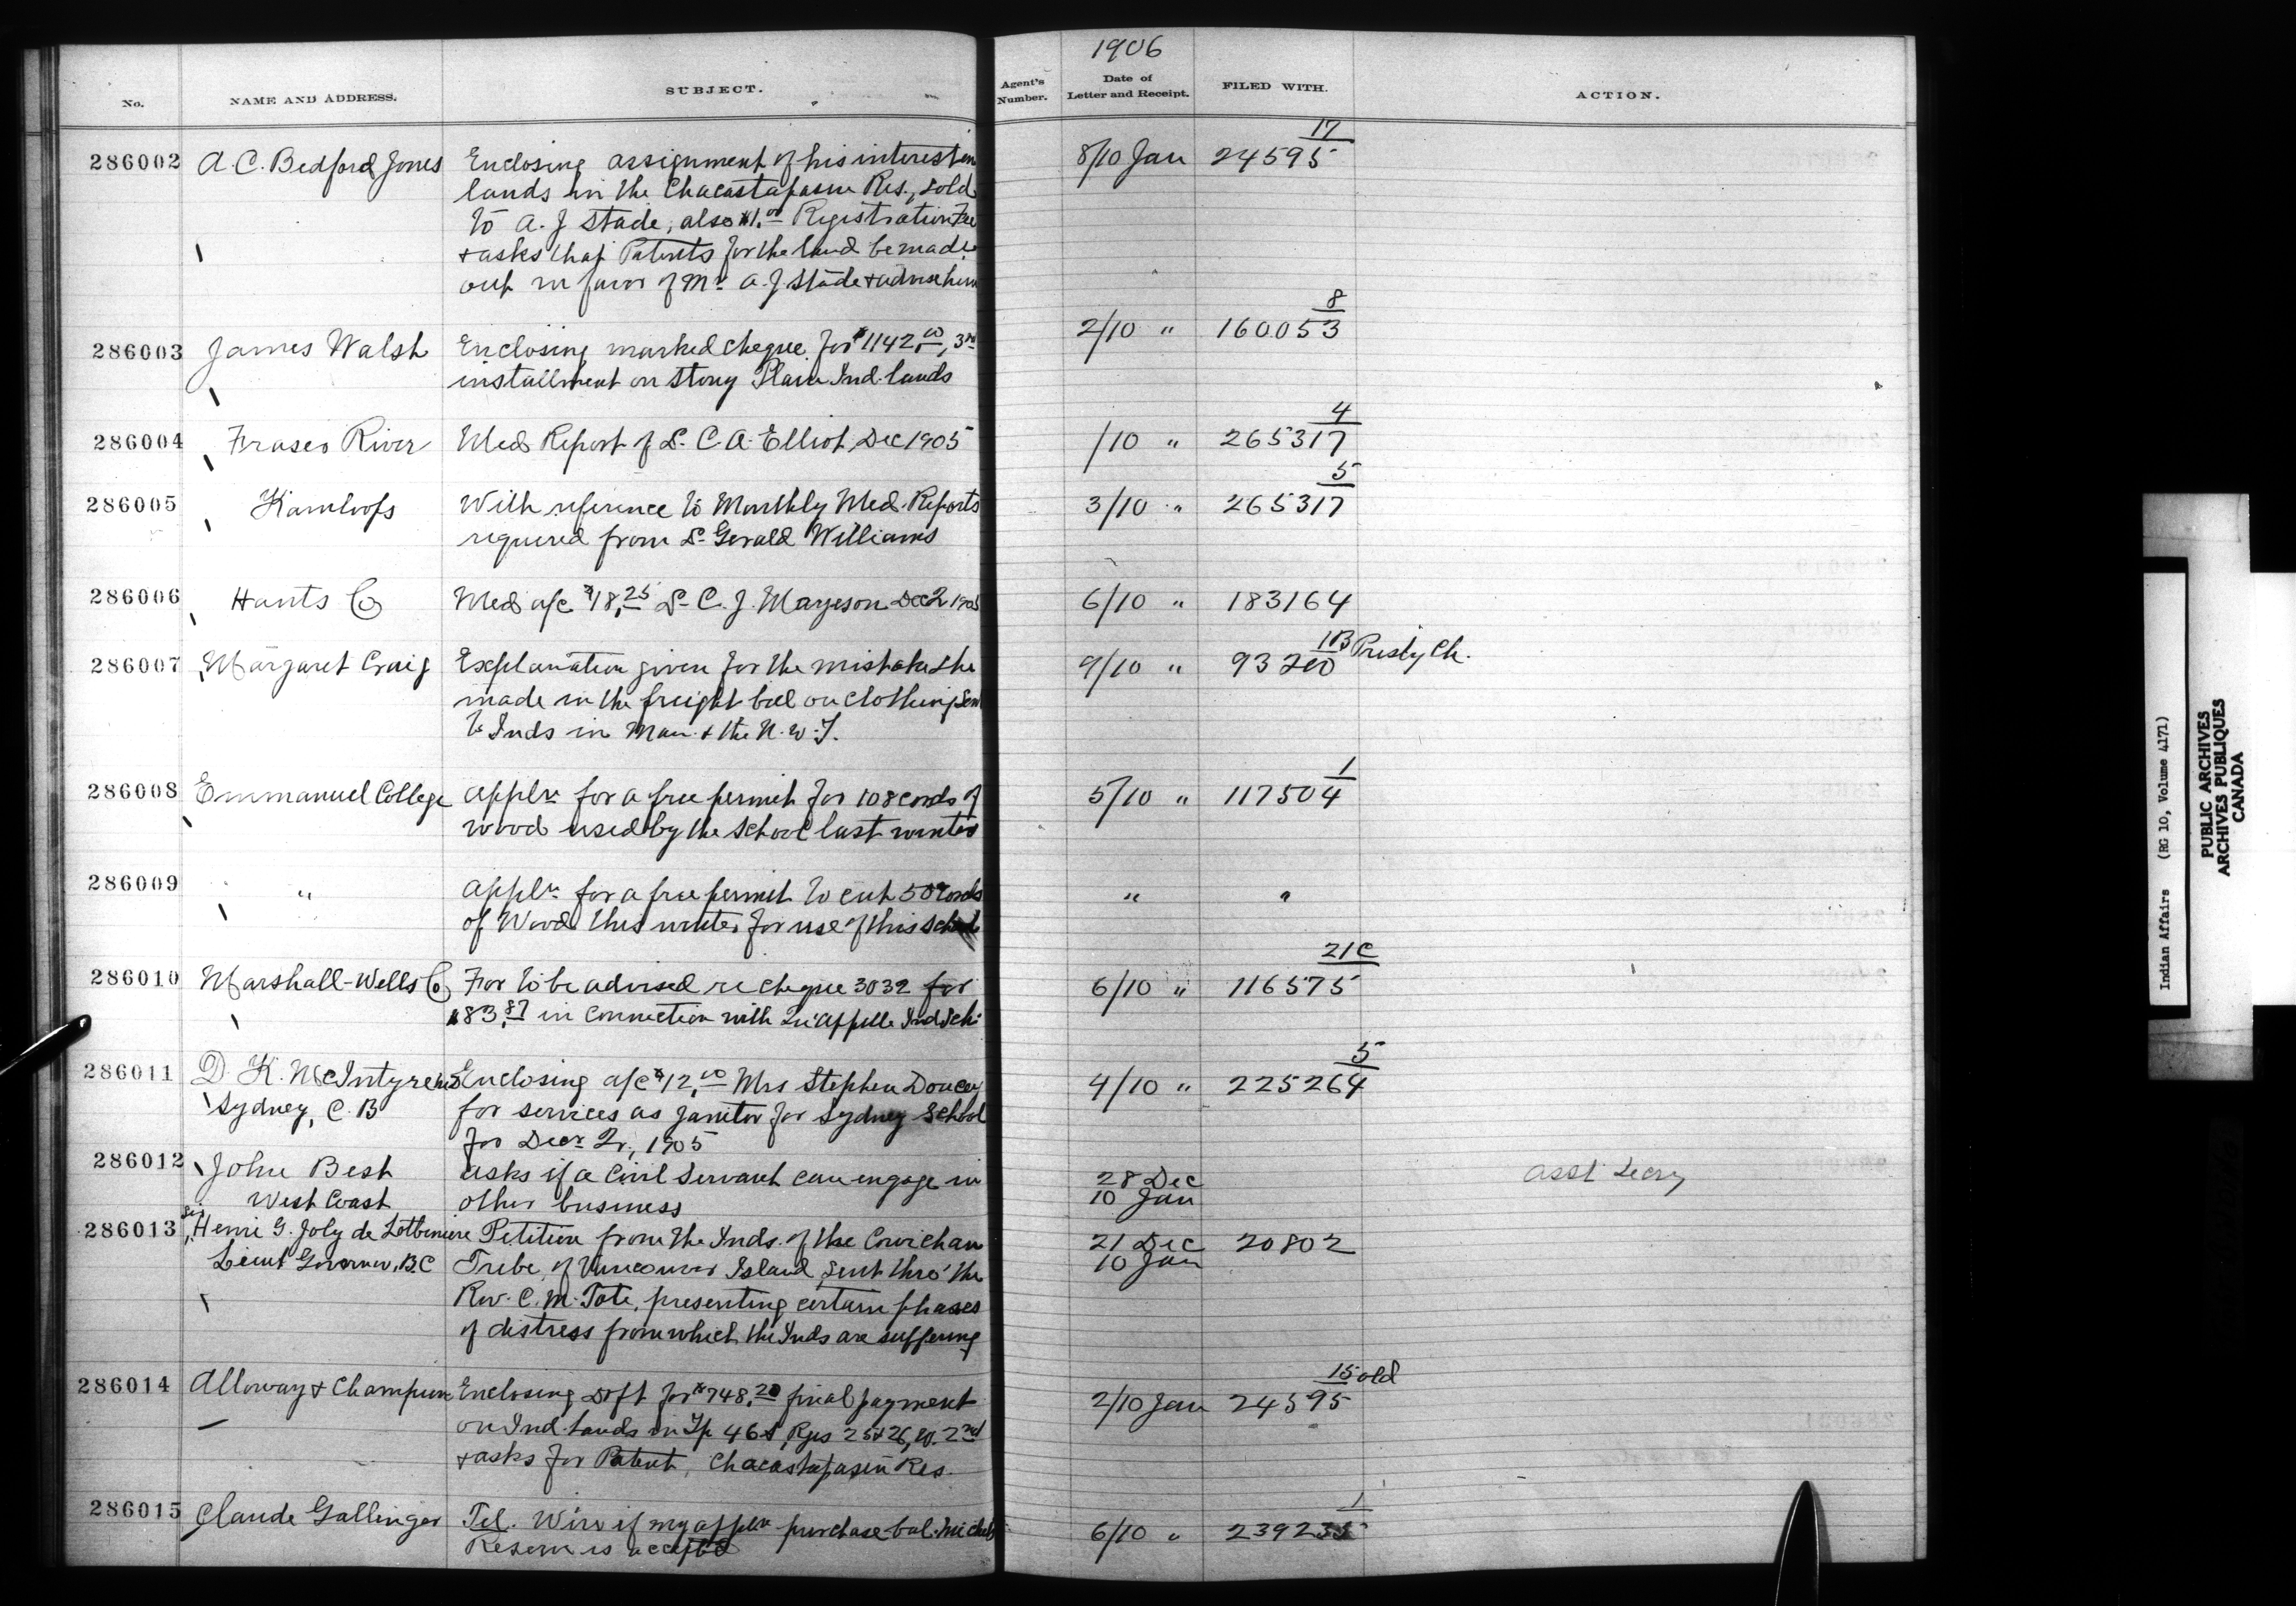 1906
No.
NAME AND ADDRESS.
SUBJECT.
Agent's Number.
Date of Letter and Receipt.
FILED WITH.
ACTION.
286002 A. C. Bedford Jones Enclosing assignment of his interest in 8/10 Jan 24595 17
lands in the Chacastapasin Res., sold
to A. J Stade, also $1.00 Registration Fee
+ asks that Patents for the land be made
out in favor of Mr. A. J. Stade + advise him
286003 James Walsh Enclosing marked cheque for $1142.00, 3rd 2/10 " 160053 8
installment on Stony Plain Ind. lands
286004 Fraser River Med Report of Dr. C. A. Elliot, Dec 1905 /10 " 265317 4
286005 Kamloops With reference to Monthly Med. Reports 3/10 " 265317 5
required from Dr Gerald Williams
286006 Hants Co Med a/c $18.25 Dr C. J. Margeson Dec 2 1905 6/10 " 183164
286007 Margaret Craig Explanation given for the mistake she 9/10 " 93200 1B Presby Ch.
made in the freight bill on clothing sent
to Inds in Man. + the N. W. T.
286008 Emmanuel College Appln for a free permit for 108 cords of 5/10 " 117504 1
wood used by the school last winter
286009 " Appln for a free permit to cut 50 cords " "
of Wood this winter for use of this school
286010 Marshall-Wells Co For to be advised re cheque 3032 for 6/10 " 116575 21C
$83.87 in connection with Qu'Appelle Ind Sch.
286011 D. K. McIntyre MD Enclosing a/c $12.00 Mrs Stephen Doucey 4/10 " 225264 5
Sydney, C. B for services as janitor for Sydney School
for Decr Qr., 1905
286012 John Best asks if a Civil Servant can engage in 28 Dec Asst Secry
West Coast other business 10 Jan
286013 Sir Henri G. Joly de Lotbiniere Petition from the Inds. of the Cowichan 21 Dec 20802
Lieut Governor, B.C Tribe of Vancouver Island, sent thro' the 10 Jan
Rev. C. M. Tate, presenting certain phases
of distress from which the Inds are suffering
286014 Alloway & Champion Enclosing Dft for $748.20 final payment 2/10 Jan 24595 15 old
on Ind. Lands in Tp 46 Rges 25 & 26, W. 2nd
+ asks for Patent, Chacastapasin Res.
286015 Claude Gallinger Tel. Wire if my appln purchase bal. Michel 6/10 " 1
Reserve is accepted
Indian Affairs (RG 10, Volume 4171)
PUBLIC ARCHIVES
ARCHIVES PUBLIQUES
CANADA